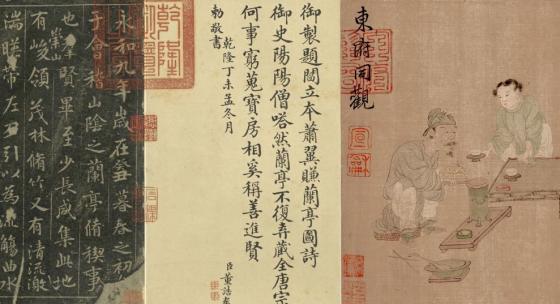 東府觀
宣和
御製題閻立本蕭翼賺蘭亭圖詩
御史陽陽僧嗒然蘭亭不復弆藏全唐宗
何事窮蒐寶房相奚稱善進賢
乾隆丁未孟冬月 臣董誥奉
勅敬書
永和九年歲在癸丑暮春之初
于會稽山陰之蘭亭脩稧事
也羣賢畢至少長咸集此地
有崇山峻領茂林脩竹又有清流激
湍暎帶左右引以為流觴曲水